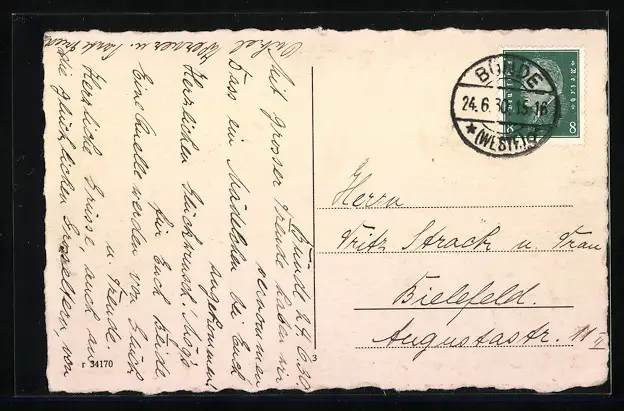 Bünde 24.6.30
Mit grosser Freude haben wir
vernommen
dass ein Mädelchen bei Euch
angekommen!
Herzlichen Glückwunsch! Möge
für Euch Beide
Eine Quelle werden von Glück
u. Freude.
Herzliche Grüsse, auch an
die glücklichen Grosseltern, von
Onkel Werner u. Tante
BÜNDE
24.6.30.15-16
(WESTF.)
8
Herrn
Fritz Strack u. Frau
Bielefeld.
Augustastr. 11 II
r 34170
3